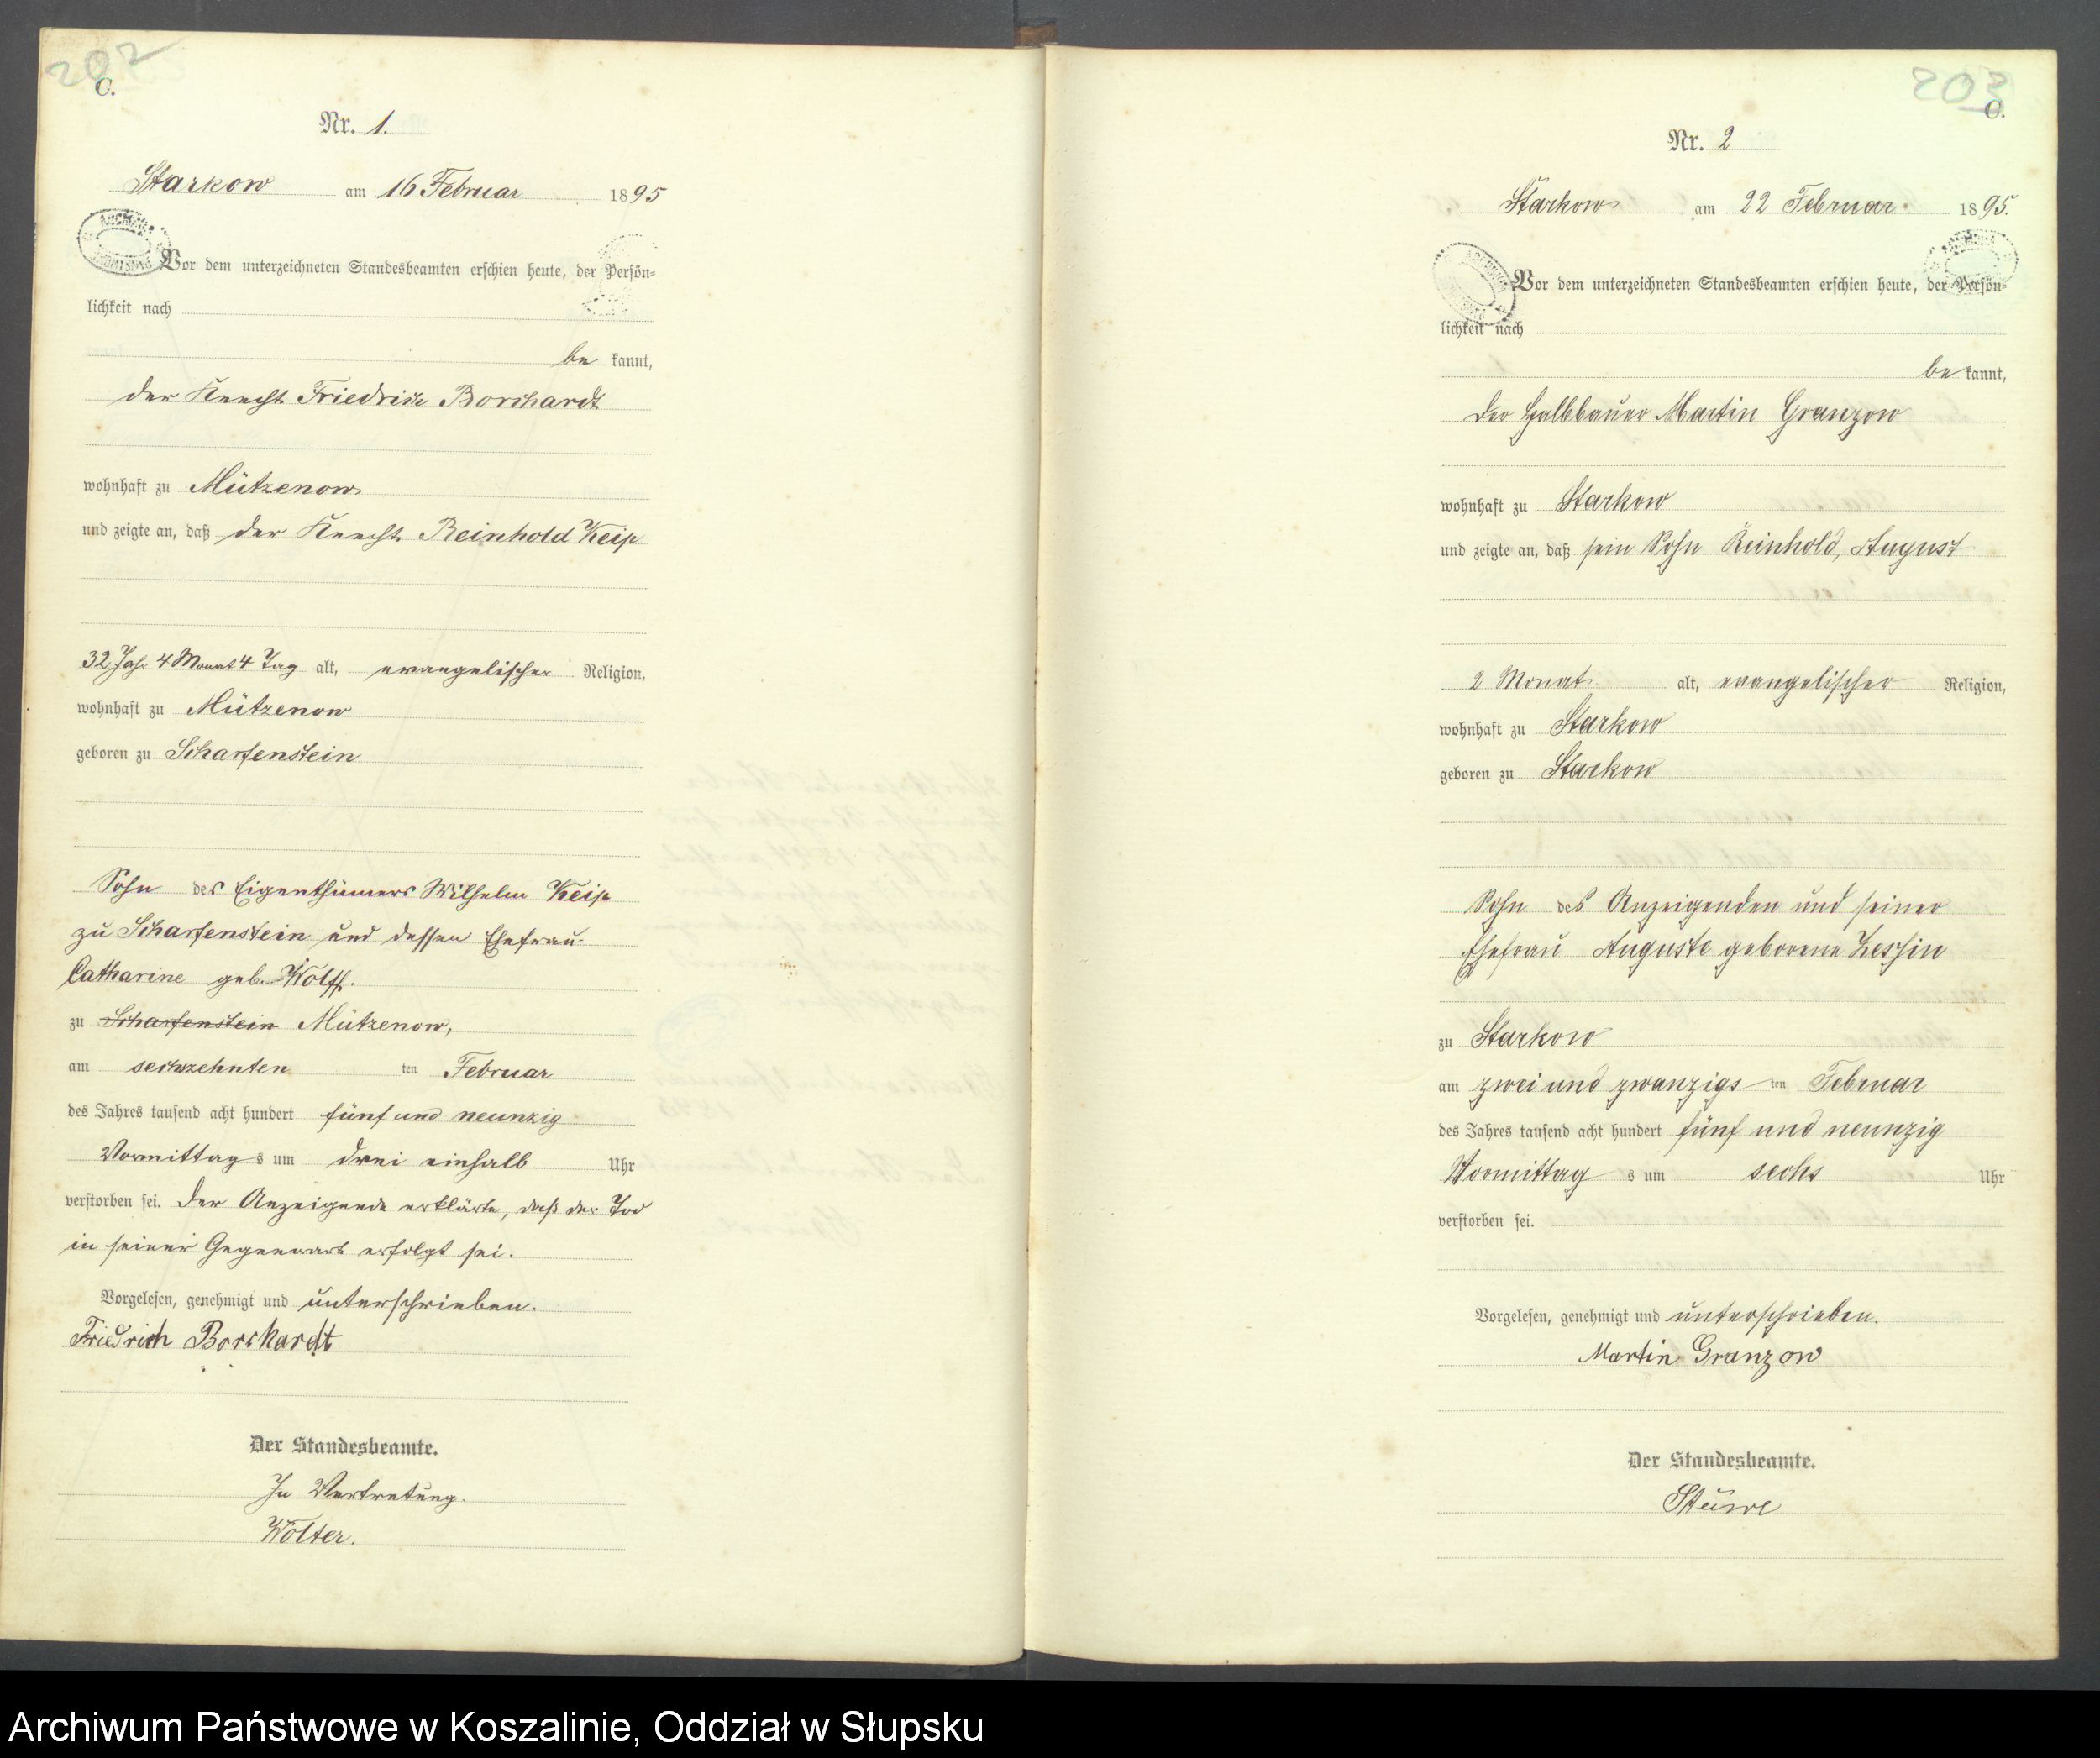 202
C.
Nr. 1.
Starkow am 16 Februar 1895
Vor dem unterzeichneten Standesbeamten erschien heute, der Persön=
lichkeit nach
be kannt,
der Knecht Friedrich Borchardt
wohnhaft zu Mützenow
und zeigte an, daß der Knecht Reinhold Keip
32 Jahr 4 Monat 4 Tag alt, evangelischer Religion,
wohnhaft zu Mützenow
geboren zu Scharfenstein
Sohn des Eigenthümers Wilhelm Keip
zu Scharfenstein und dessen Ehefrau
Catharine geb. Wolff.
zu Scharfenstein Mützenow,
am sechszehnten ten Februar
des Jahres tausend acht hundert fünf und neunzig
Vormittag s um drei einhalb Uhr
verstorben sei. Der Anzeigende erklärte, daß der Tod
in seiner Gegenwart erfolgt sei.
Vorgelesen, genehmigt und unterschrieben.
Friedrich Borchardt
Der Standesbeamte.
In Vertretung.
Wolter.
203
C.
Nr. 2
Starkow am 22 Februar 1895.
Vor dem unterzeichneten Standesbeamten erschien heute, der Persön=
lichkeit nach
be kannt,
der Halbbauer Martin Granzow
wohnhaft zu Starkow
und zeigte an, daß sein Sohn Reinhold, August
2 Monat alt, evangelischer Religion,
wohnhaft zu Starkow
geboren zu Starkow
Sohn des Anzeigenden und seiner
Ehefrau Auguste geborene Zessin
zu Starkow
am zwei und zwanzigs ten Februar
des Jahres tausend acht hundert fünf und neunzig
Vormittag s um sechs Uhr
verstorben sei.
Vorgelesen, genehmigt und unterschrieben.
Martin Granzow
Der Standesbeamte.
Stüwe
Archiwum Państwowe w Koszalinie, Oddział w Słupsku